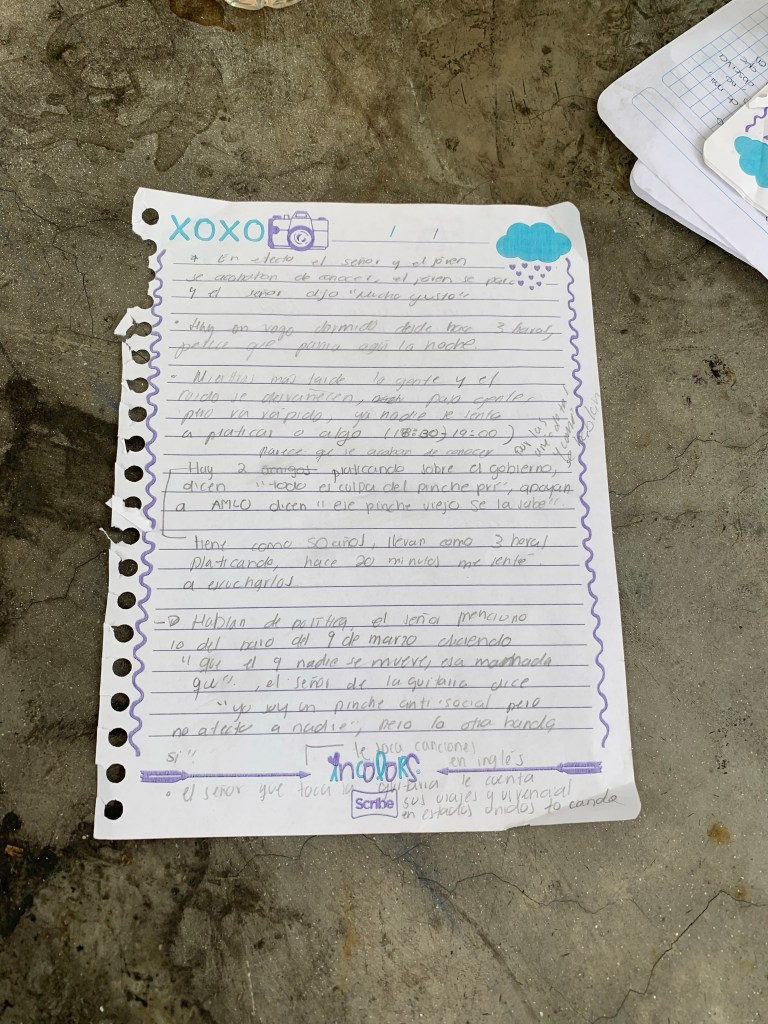 XOXO
/ /
* En efecto el señor y el joven
se acababan de conocer, el joven se paro
y el señor dijo "mucho gusto"
• Hay un vago dormido desde hace 3 horas,
parece que pasara aquí la noche.
• Mientras mas tarde la gente y el
ruido se desvanecen, pasa gente,
pero va rápido, ya nadie se sienta
a platicar o algo (18:30-19:00)
parece que se acaban de conocer
Hay 2 amigos platicando sobre el gobierno,
dicen "todo es culpa del pinche pri", apoyan
a AMLO dicen "ese pinche viejo se la sabe".
tiene como 50 años, llevan como 2 horas
platicando, hace 20 minutos me senté
a escucharlos.
→ Hablan de política, el señor menciono
lo del paro del 9 de marzo diciendo
"que el 9 nadie se mueve, esa mamada
que", el señor de la guitarra dice
"yo soy un pinche anti-social pero
no afecto a nadie", pero la otra banda
si"
le toca canciones
en inglés
incolors.
• el señor que toca la guitarra le cuenta
Scribe
sus viajes y vivencias
en estados unidos tocando